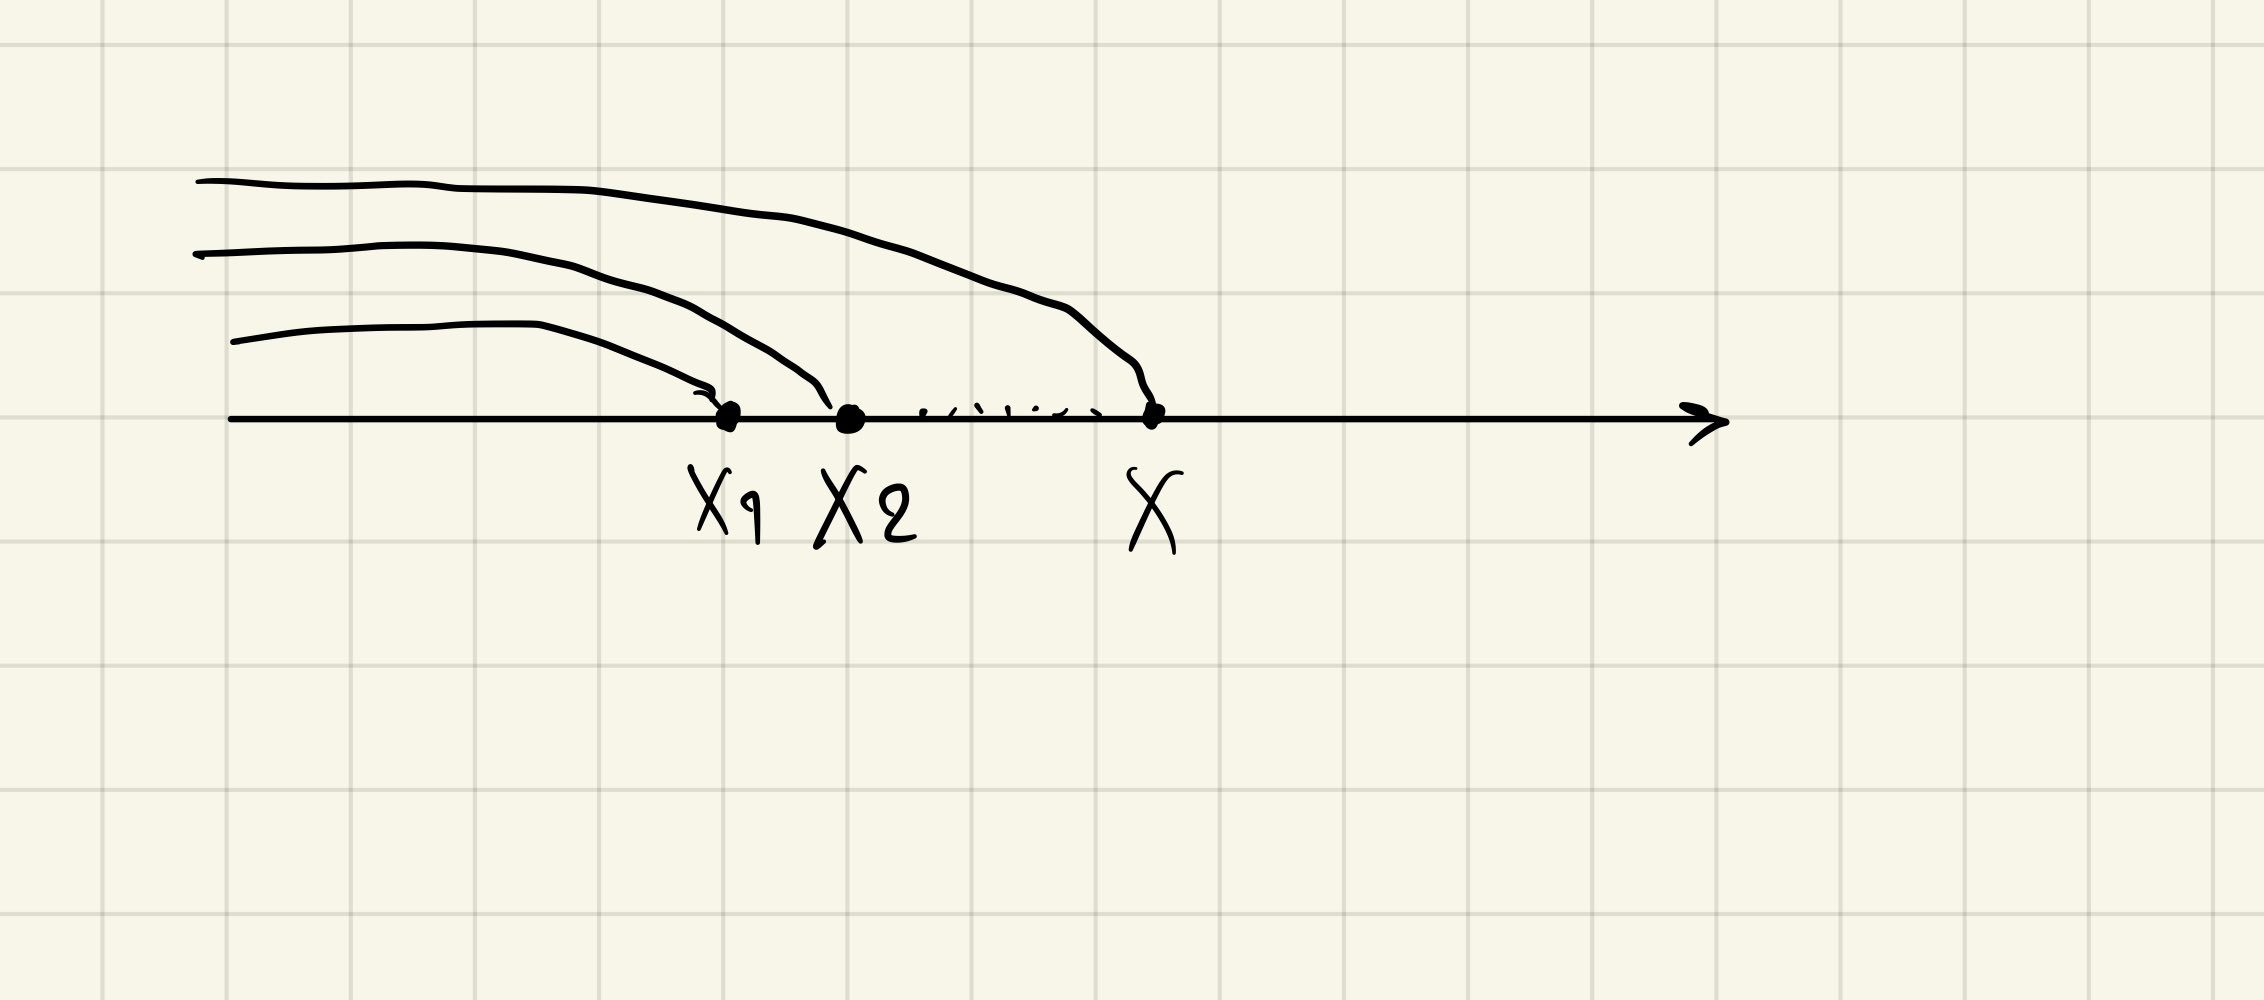 X1 X2 X